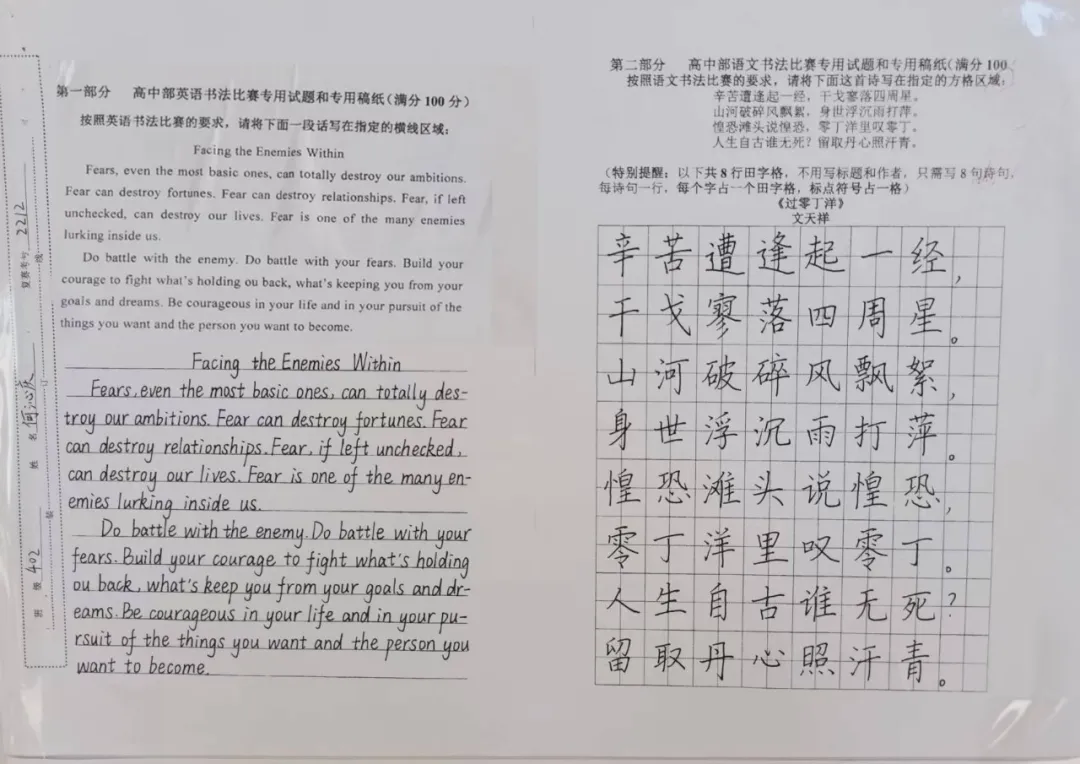 第一部分 高中部英语书法比赛专用试题和专用稿纸(满分100分)
按照英语书法比赛的要求,请将下面一段话写在指定的横线区域:
Facing the Enemies Within
Fears, even the most basic ones, can totally destroy our ambitions.
Fear can destroy fortunes. Fear can destroy relationships. Fear, if left
unchecked, can destroy our lives. Fear is one of the many enemies
lurking inside us.
Do battle with the enemy. Do battle with your fears. Build your
courage to fight what's holding ou back, what's keeping you from your
goals and dreams. Be courageous in your life and in your pursuit of the
things you want and the person you want to become.
Facing the Enemies Within
Fears, even the most basic ones, can totally des-
troy our ambitions. Fear can destroy fortunes. Fear
can destroy relationships. Fear, if left unchecked,
can destroy our lives. Fear is one of the many en-
emies lurking inside us.
Do battle with the enemy. Do battle with your
fears. Build your courage to fight what's holding
ou back, what's keep you from your goals and dr-
eams. Be courageous in your life and in your pu-
rsuit of the things you want and the person you
want to become.
班级 402 姓名 何沁 2212
订
线
第二部分 高中部语文书法比赛专用试题和专用稿纸(满分100
按照语文书法比赛的要求,请将下面这首诗写在指定的方格区域:
辛苦遭逢起一经,干戈寥落四周星。
山河破碎风飘絮,身世浮沉雨打萍。
惶恐滩头说惶恐,零丁洋里叹零丁。
人生自古谁无死?留取丹心照汗青。
(特别提醒:以下共8行田字格,不用写标题和作者,只需写8句诗句,
每诗句一行,每个字占一个田字格,标点符号占一格)
《过零丁洋》
文天祥
辛苦遭逢起一经,
干戈寥落四周星。
山河破碎风飘絮,
身世浮沉雨打萍。
惶恐滩头说惶恐,
零丁洋里叹零丁。
人生自古谁无死?
留取丹心照汗青。